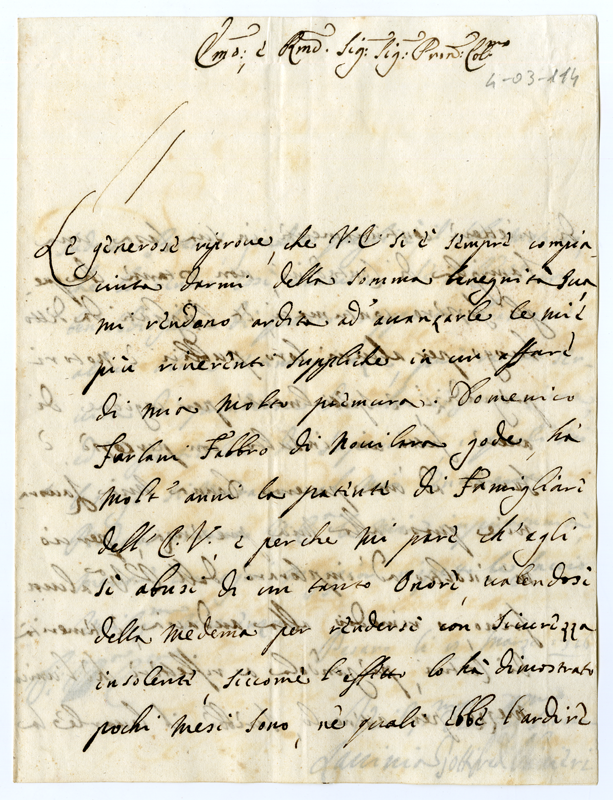 Emo: e Rmo: Sig: Sig: Pron: Col:mo
4-03-114
Le generose riprove, che V. E. si è sempre compia-
ciuta darmi della somma benegnità Sua
mi rendono ardita ad' avanzarle le mie
più riverenti suppliche in un affare
di mia molto premura. Domenico
Furlani Fabbro di Novilara gode, hà
molt' anni la patente di Famigliare
dell' E. V., e perche mi pare ch' egli
si abusi di un tanto Onore, valendosi
della medema per rendersi con sicurezza
insolente, siccome l'effetto lo hà dimostrato
pochi mesi sono, nè quali ebbe l'ardire